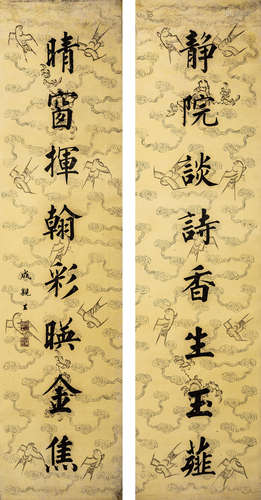 静院談詩香生玉蕤
晴窗揮翰彩暎金焦
成親王